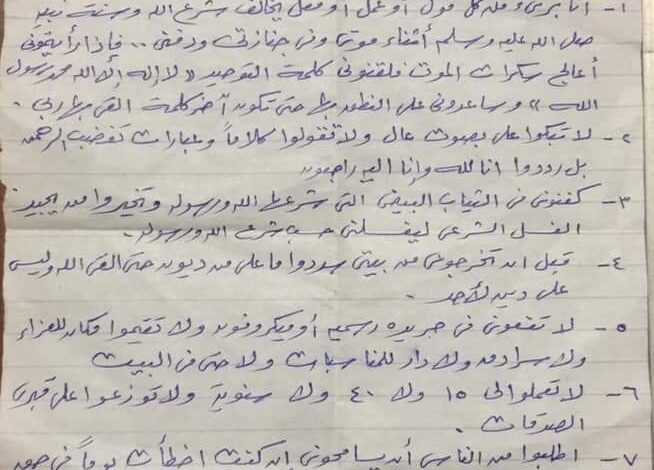 ١- أنا بريء من كل قول أو عمل أو فعل يخالف شرع الله وسنة نبيه
صلى الله عليه وسلم أثناء موتى وفى جنازتى ودفنى .. فإذا رأيتمونى
أعالج سكرات الموت فلقنونى كلمة التوحيد « لا إله إلا الله محمد رسول
الله » وساعدونى على النطق بها حتى تكون آخر كلمة ألقى بها ربى .
٢- لا تبكوا على بصوت عال ولا تقولوا كلاماً وعبارات تغضب الرحمن
بل رددوا انا لله وإنا اليه راجعون
٣- كفنونى فى الثياب البيض التى شرعها الله ورسوله وتخيروا من يجيد
الغسل الشرعى ليغسلنى حسب شرع الله ورسوله .
٤- قبل ان تخرجونى من بيتى سددوا ما على من ديون حتى ألقى الله وليس
على دين لأحد .
٥- لا تنعونى فى جريده رسميه أو ميكروفون ولا تقيموا مكان للعزاء
ولا سرادق ولا دار للمناسبات ولا حتى فى البيت
٦- لا تعملوا لى ١٥ ولا ٤٠ ولا سنوية ولا توزعوا على قبرى
الصدقات .
٧- اطلبوا من الناس أن يسامحونى ان كنت اخطأت يوماً فى حق